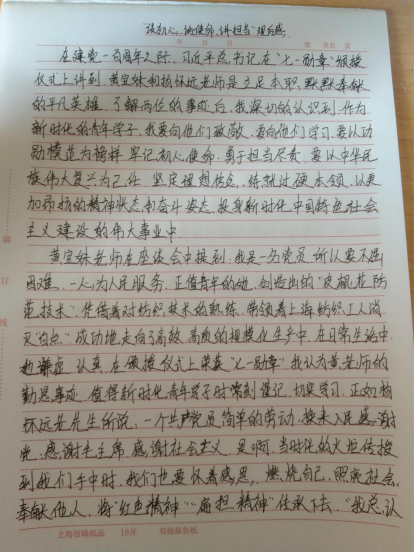 "谈初心、谈使命、讲担当"观后感
在建党一百周年之际，习近平总书记在"七一勋章"颁授
仪式上讲到，黄宝妹和杨怀远老师是立足本职，默默奉献
的平凡英雄，了解两位的事迹后，我深切的认识到：作为
新时代的青年学子，我要向他们致敬，要向他们学习，要以功
勋模范为榜样，牢记初心使命，勇于担当尽责，要以中华民
族伟大复兴为己任，坚定理想信念，练就过硬本领，以更
加昂扬的精神状态和奋斗姿态，投身新时代中国特色社会
主义建设的伟大事业中
黄宝妹老师在座谈会中提到，我是一名党员，所以要不畏
困难，一心为人民服务，正值青年的她，创造出的
技术"，凭借着对纺织技术的熟练，带领着上海纺织工人消
灭"白点"，成功地走向了高效、高质的规模化生产中，在日常生活中，
她谦虚、认真，在颁授仪式上荣获"七一勋章"，我认为黄老师的
勤恳事迹，值得新时代青年学子时常刻谨记，切实学习，正如杨
怀远老先生所说，一个共产党员简单的劳动，换来人民感谢
党、感谢毛主席、感谢社会主义，是啊，当时代的火炬传授
到我们手中时，我们也要怀着感恩，燃烧自己，照亮社会，
奉献他人，将"红色精神""扁担精神"传承下去，"我总认
上海恒峰纸品 16开 双线报告纸
装
订
线